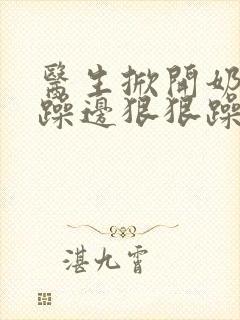 醫生掀開奶
躁邊狠狠躁
湛九霄